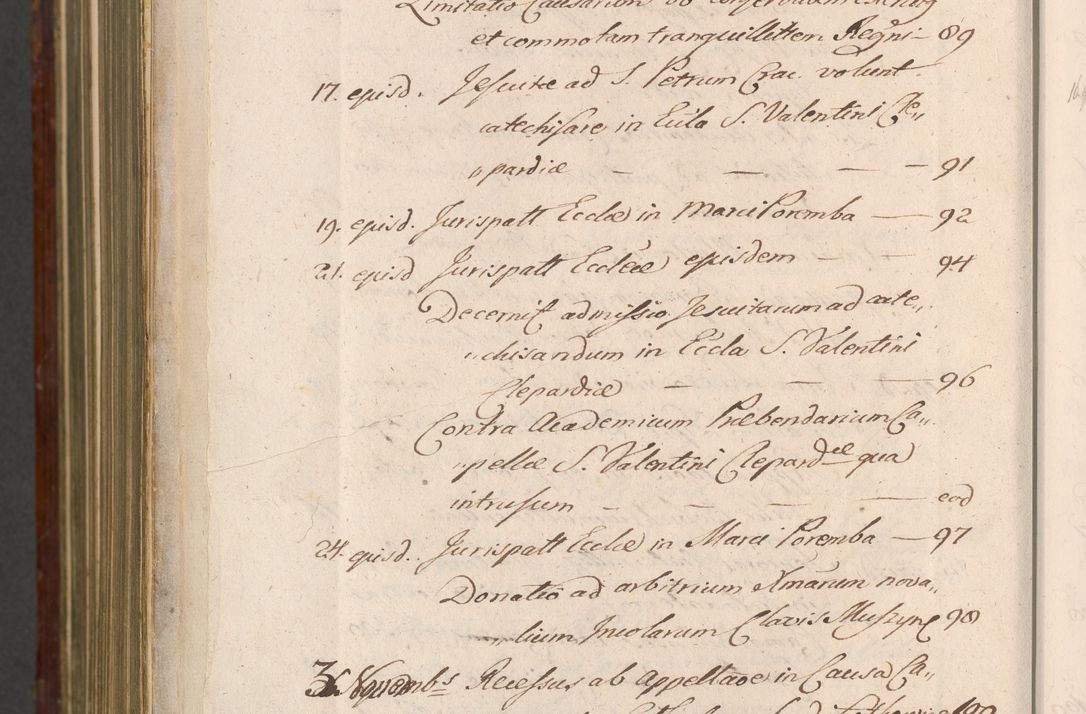 Limitatio Causarum ob
et commotam tranquillittem Regni - 89
17. ejusd. Jesuitæ ad S. Petrum Crac. volunt.
catechisare in Eccla S. Valentini Cle,,
,,pardiæ — — — — 91
19. ejusd. Jurispatt Ecclæ in Marci Poremba — 92
21. ejusd Jurispatt Ecclæ ejusdem — — 94
Decernit admissio Jesuitarum ad cate,,
,,chisandum in Eccla S. Valentini
Clepardiæ — — — 96
Contra Academicum Præbendarium Ca,,
,,pellæ S. Valentini Clepardæ qua
intrusum — — — — eod
24. ejusd. Jurispatt Ecclæ in Marci Poremba — 97
Donatio ad arbitrium nova,,
,,lium Incolarum Clavis Muszyne 98
3 Novembs Recessus ab Appeltaoe in Causa Ca,,